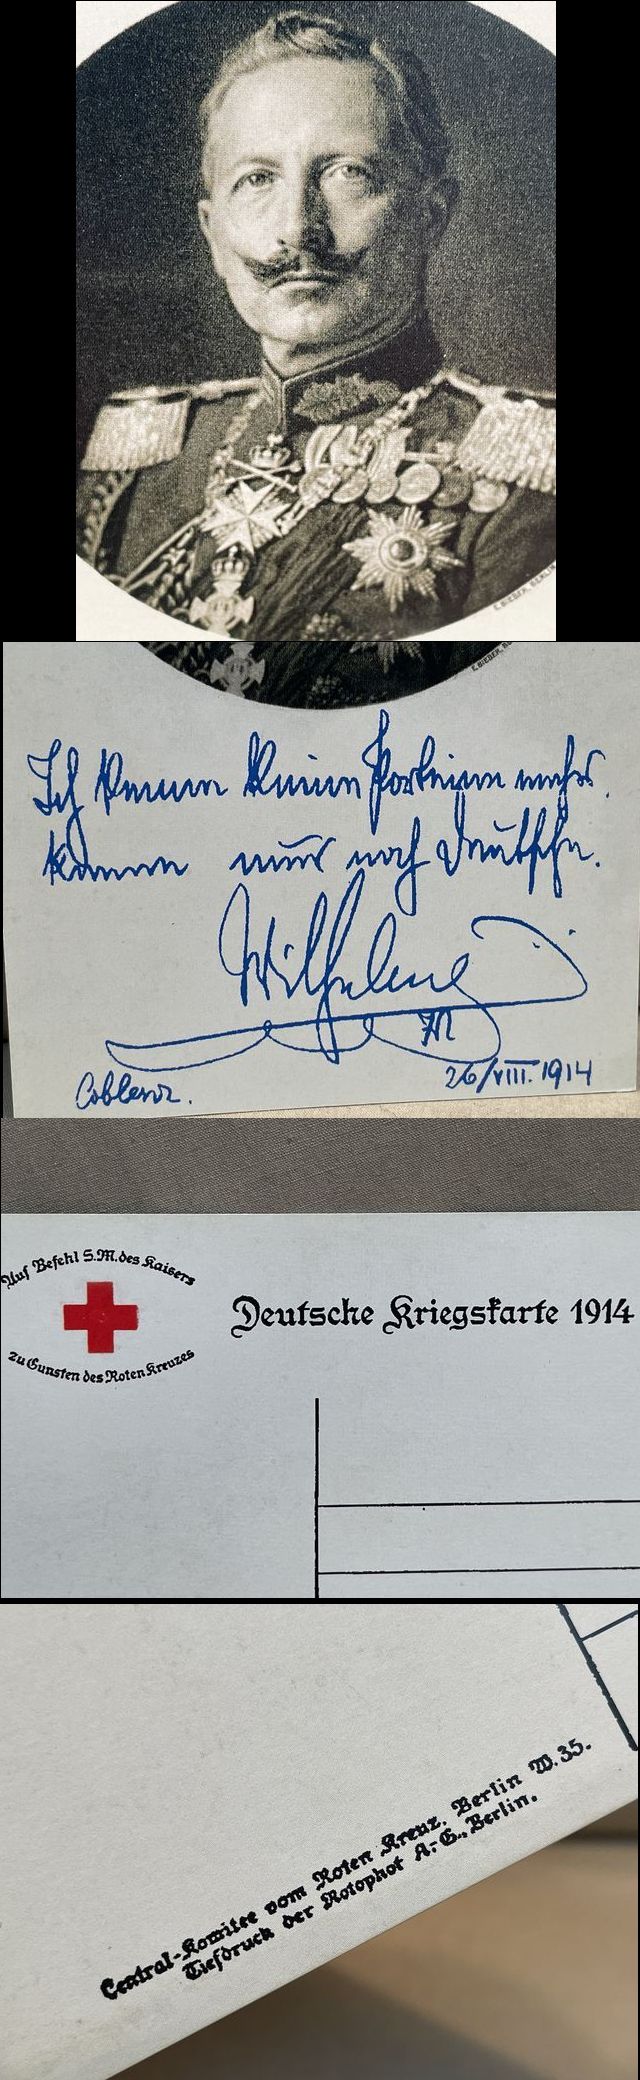 E. BIEBER, BERLIN
E. BIEBER, B
Ich kenne keine Parteien mehr.
kenne nur noch Deutsche.
Wilhelm
I R
Coblenz.
26/VIII. 1914
Auf Befehl S.M. des Kaisers
Deutsche Kriegskarte 1914
zu Gunsten des Roten Kreuzes
Central-Komitee vom Roten Kreuz. Berlin W. 35.
Tiefdruck der Rotophot A.-G., Berlin.